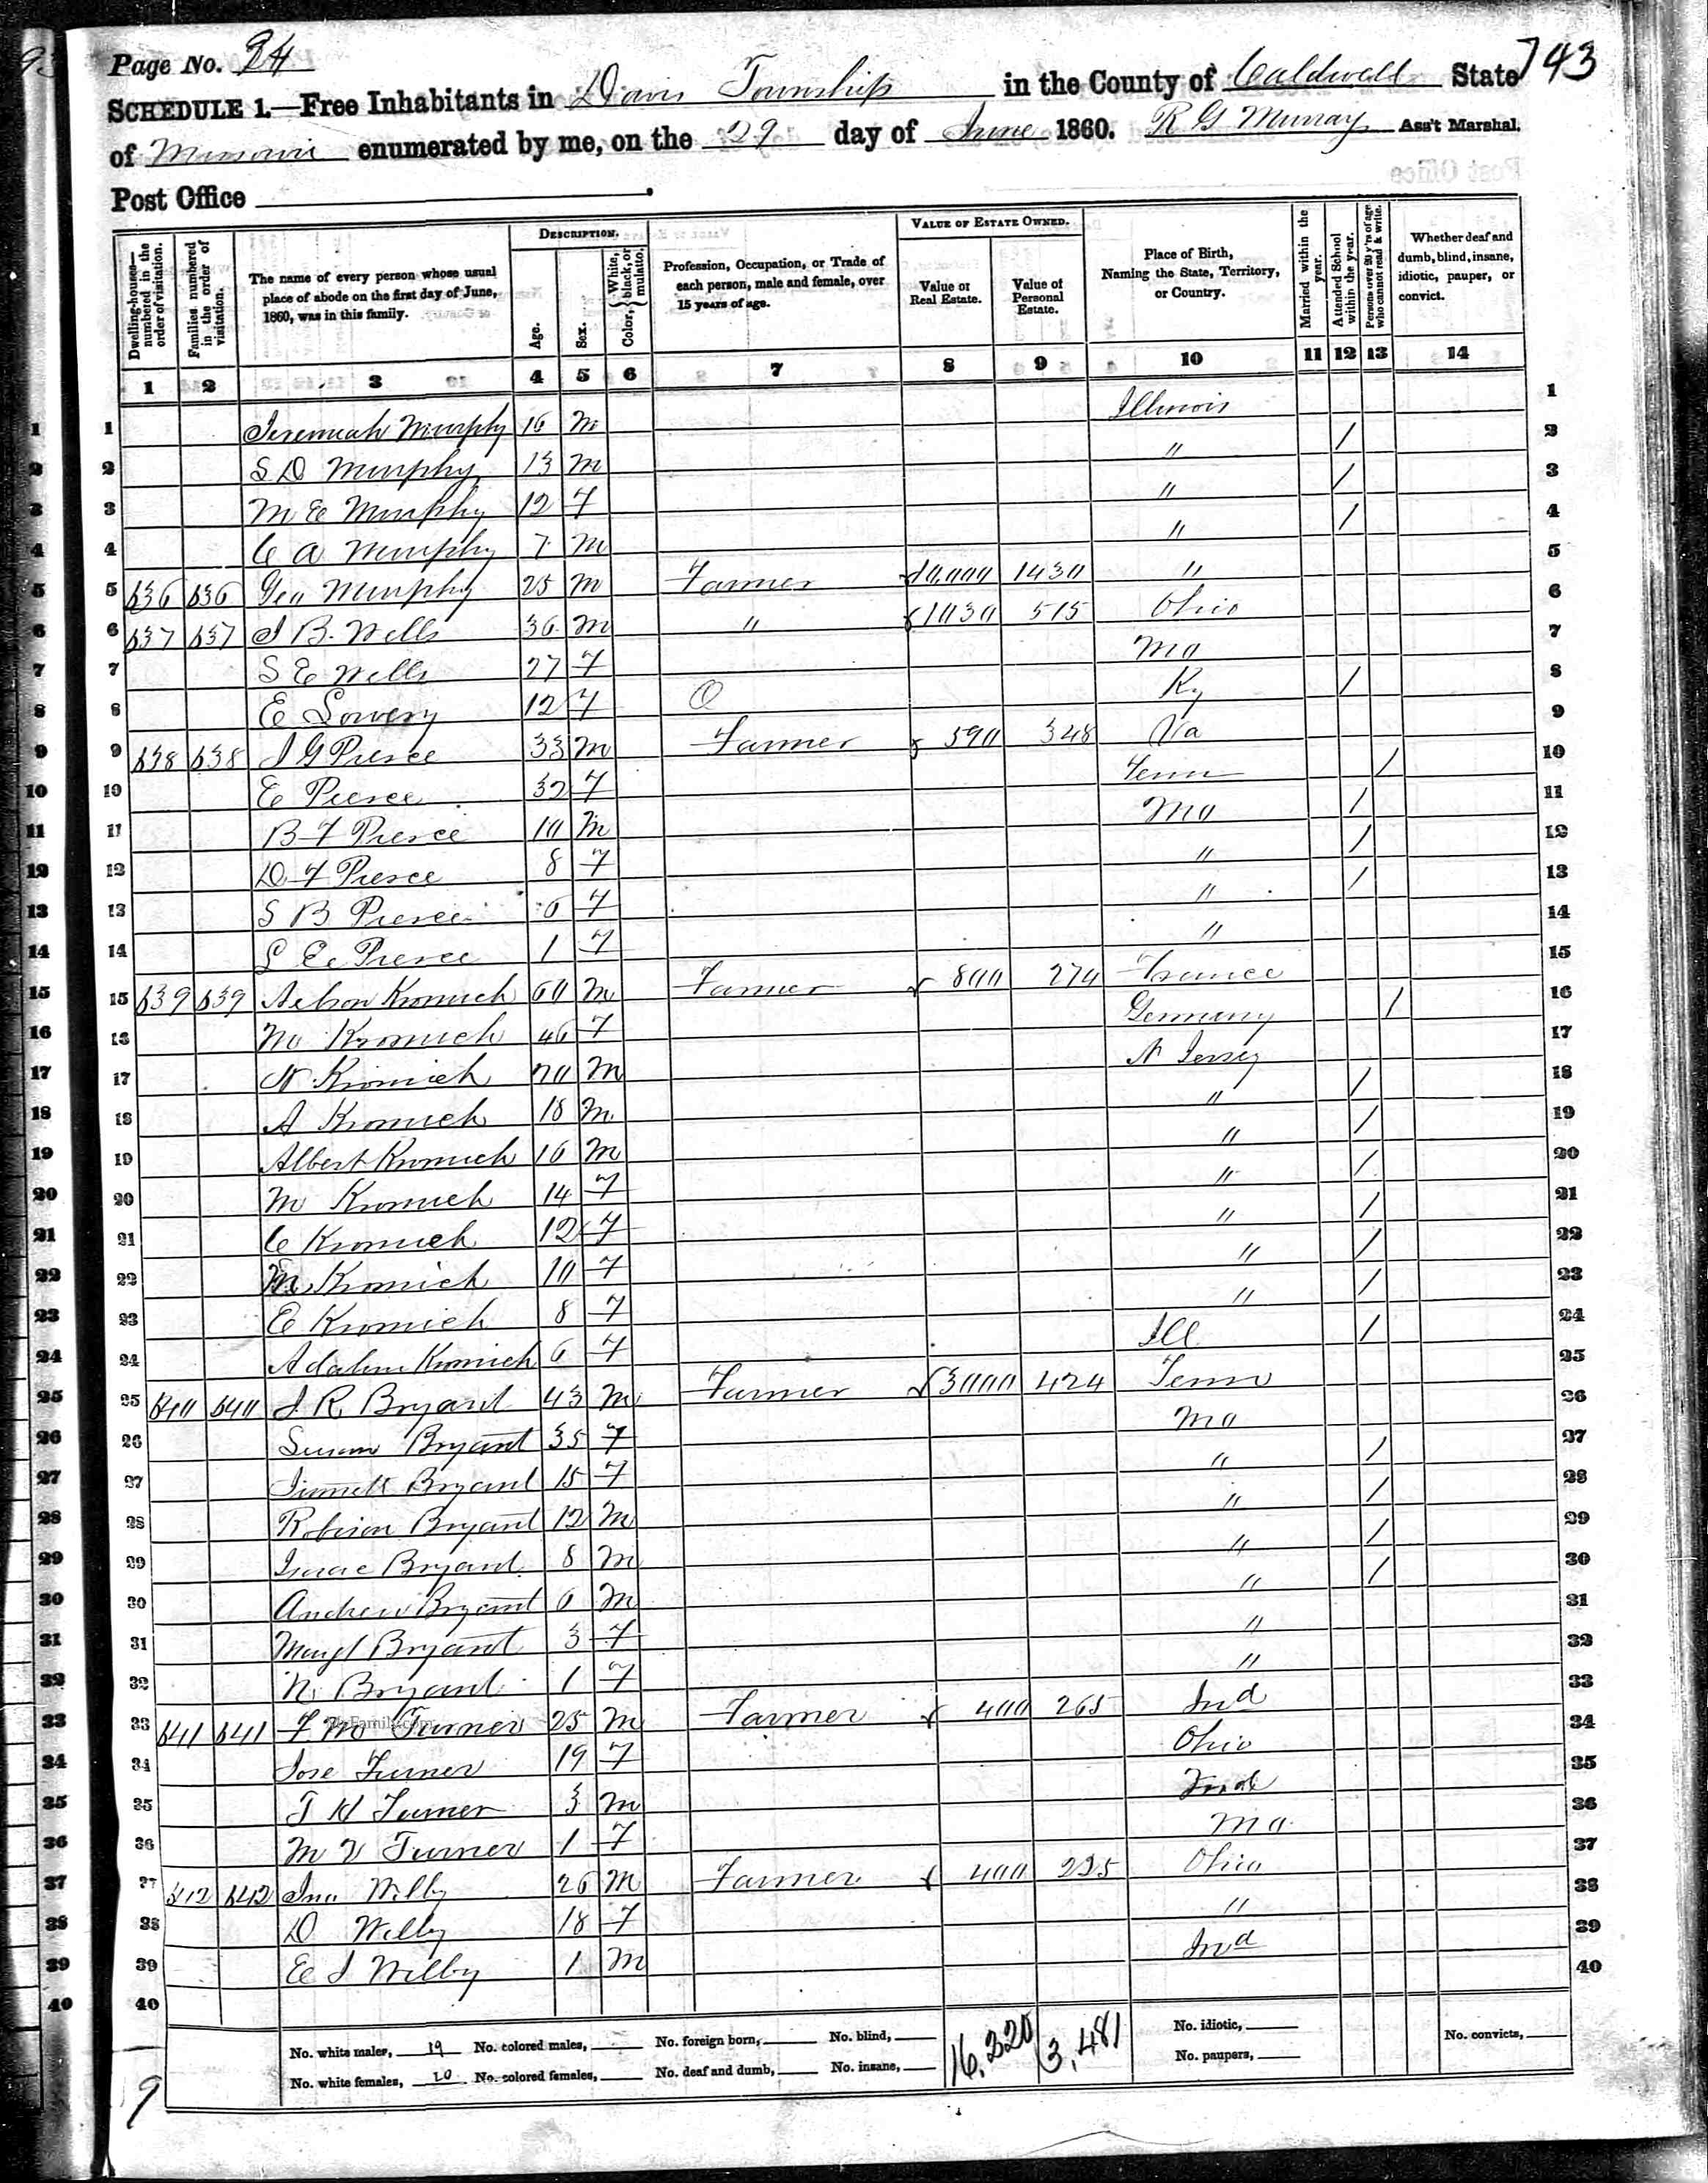 Page No. 84
743
SCHEDULE 1.—Free Inhabitants in Davis Township in the County of Caldwell State
of Missouri enumerated by me, on the 29 day of June 1860. R G Murray Ass't Marshal.
Post Office
Dwelling-houses—numbered in the order of visitation.
Families numbered in the order of visitation.
The name of every person whose usual place of abode on the first day of June, 1860, was in this family.
DESCRIPTION.
Age.
Sex.
Color, { White, black, or mulatto.
Profession, Occupation, or Trade of each person, male and female, over 15 years of age.
VALUE OF ESTATE OWNED.
Value of Real Estate.
Value of Personal Estate.
Place of Birth, Naming the State, Territory, or Country.
Married within the year.
Attended School within the year.
Persons over 20 y'rs of age who cannot read & write.
Whether deaf and dumb, blind, insane, idiotic, pauper, or convict.
1 2 3 4 5 6 7 8 9 10 11 12 13 14
1 Jeremiah Murphy 16 m Illinois 1
2 S D Murphy 13 m " / 2
3 M E Murphy 12 f " / 3
4 C A Murphy 7 m " / 4
5 636 636 Geo Murphy 25 m Farmer 10,000 1430 " 5
6 637 637 J B. Wells 36 m " 1030 515 Ohio 6
7 S E Wells 27 f Mo 7
8 E Lowery 12 f O Ky / 8
9 638 638 J G Pierce 33 m Farmer 590 348 Va 9
10 E Pierce 32 f Tenn / 10
11 B F Pierce 10 m Mo / 11
12 D F Pierce 8 f " / 12
13 S B Pierce 6 f " / 13
14 L E Pierce 1 f " 14
15 639 639 Kromich 60 m Farmer 800 274 France 15
16 M Kromich 46 f Germany / 16
17 N Kromich 20 m N Jersey 17
18 A Kromich 18 m " / 18
19 Albert Kromich 16 m " / 19
20 M Kromich 14 f " / 20
21 C Kromich 12 f " / 21
22 M Kromich 10 f " / 22
23 E Kromich 8 f " / 23
24 Adaline Kromich 6 f Ill / 24
25 640 640 J R Bryant 43 m Farmer 3000 424 Tenn 25
26 Susan Bryant 35 f Mo 26
27 Bryant 15 f " / 27
28 Robison Bryant 12 m " / 28
29 Isaac Bryant 8 m " / 29
30 Andrew Bryant 6 m " / 30
31 Bryant 3 f " 31
32 N. Bryant 1 f " 32
33 641 641 F M Turner 25 m Farmer 400 265 Ind 33
34 Turner 19 f Ohio 34
35 T H Turner 3 m Ind 35
36 M V Turner 1 f Mo. 36
37 642 642 Jno Wilby 26 m Farmer 400 225 Ohio 37
38 D Wilby 18 f " 38
39 E J Wilby 1 m Ind 39
40 40
MyFamily.com
No. white males, 19 No. colored males, No. foreign born, No. blind, 16,220 3,481 No. idiotic, No. convicts,
No. white females, 20 No. colored females, No. deaf and dumb, No. insane, No. paupers,
9